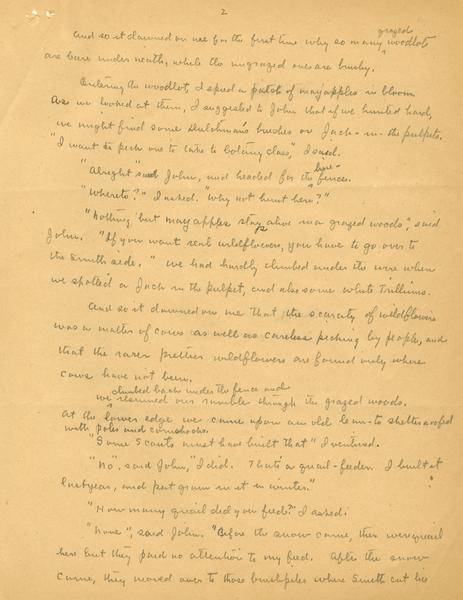 2
grazed
And so it dawned on me for the first time why so many woodlots
are bare under neath, while the ungrazed ones are brushy.
Entering the woodlot, I spied a patch of mayapples in bloom.
As we looked at them, I suggested to John that if we hunted hard,
we might find some Dutchman's breeches or Jack-in-the pulpits.
"I want to pick one to take to botany class," I said.
"Alright" said John, and headed for the line-fence.
"Whereto?" I asked. "Why not hunt here?"
"Nothing but mayapples stays alive in a grazed woods", said
John. "If you want real wildflowers, you have to go over to
the Smith side." We had hardly climbed under the wire when
we spotted a Jack in the pulpit, and also some white Trilliums.
And so it dawned on me that the scarcity of wildflowers
was a matter of cows as well as careless picking by people, and
that the rarer prettier wildflowers are found only where
cows have not been.
climbed back under the fence and
We resumed our ramble through the grazed woods.
At the lower edge we came upon an old lean-to shelter roofed
with poles and cornstocks.
"Some Scouts must have built that" I ventured.
"No", said John, "I did. That's a quail-feeder. I built it
last year, and put grain in it in winter."
"How many quail did you feed?" I asked.
"None", said John. "Before the snow came, there were quail
here but they paid no attention to my feed. After the snow
came, they moved over to those brushpiles where Smith cut his